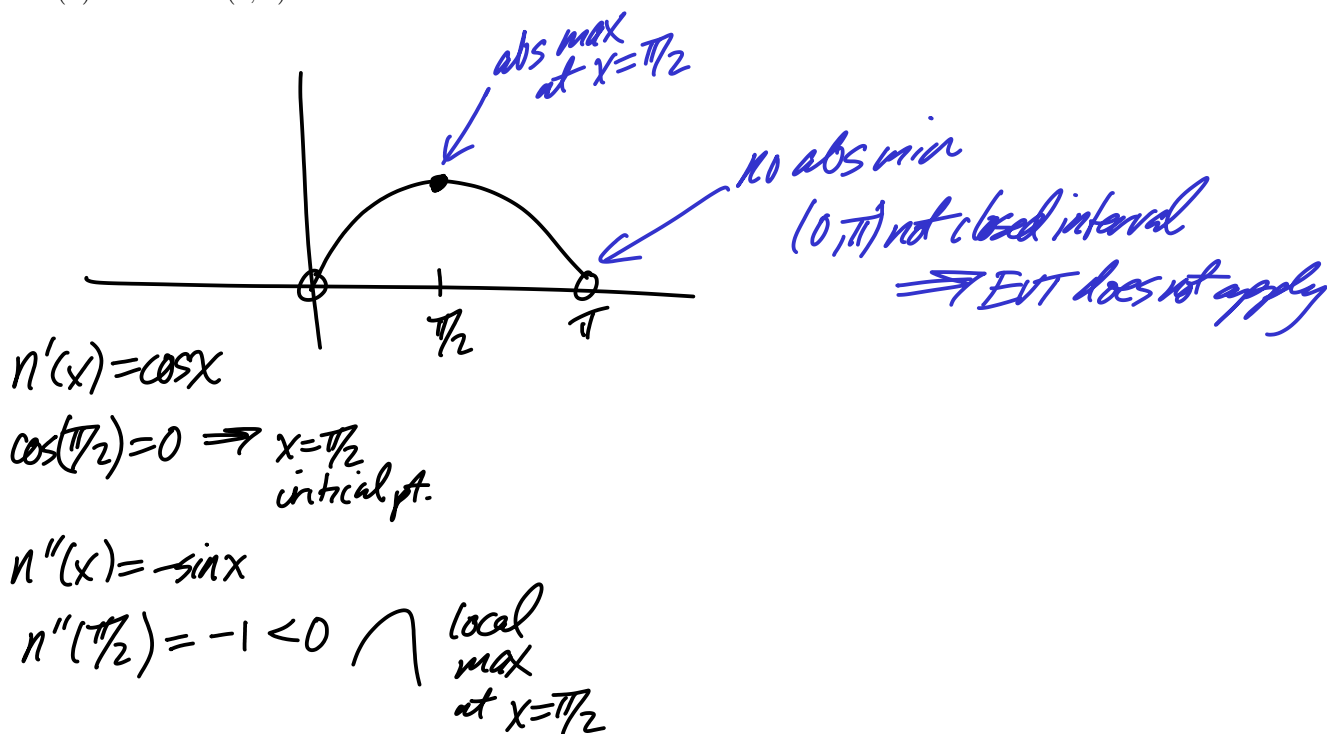 abs max
at x=π/2
no abs min
(0,π) not closed interval
⇒ EVT does not apply
π/2
π
n'(x)=cosx
cos(π/2)=0 ⇒ x=π/2
critical pt.
n''(x)=-sinx
n''(π/2)=-1<0
local
max
at x=π/2